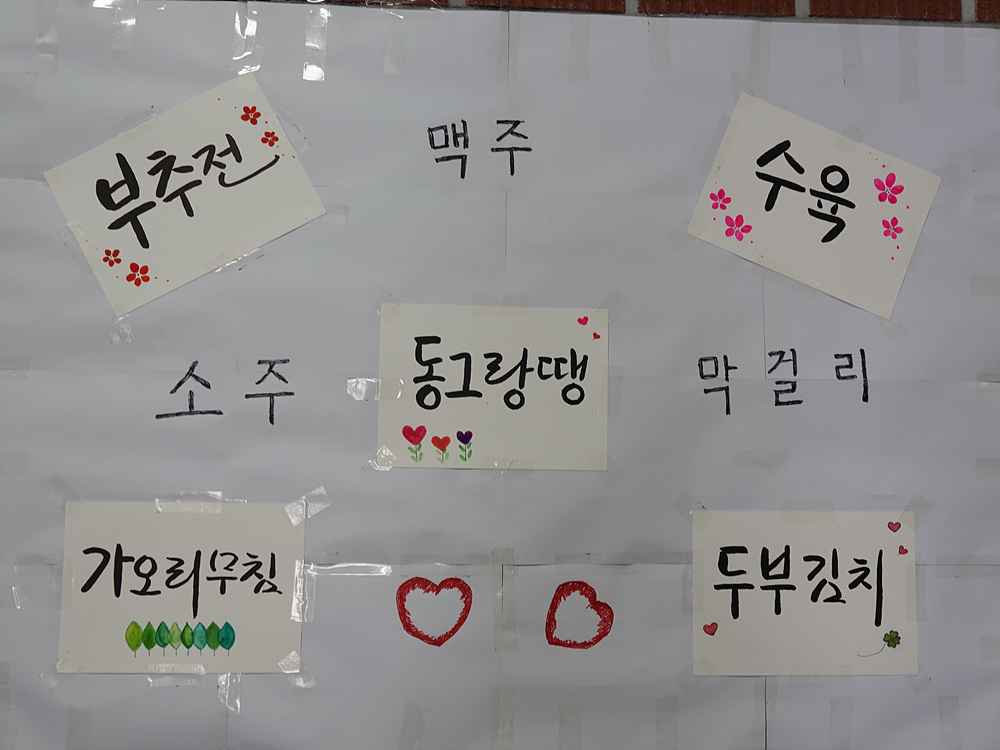 부추전
맥주
수육
소주
동그랑땡
막걸리
가오리무침
두부김치